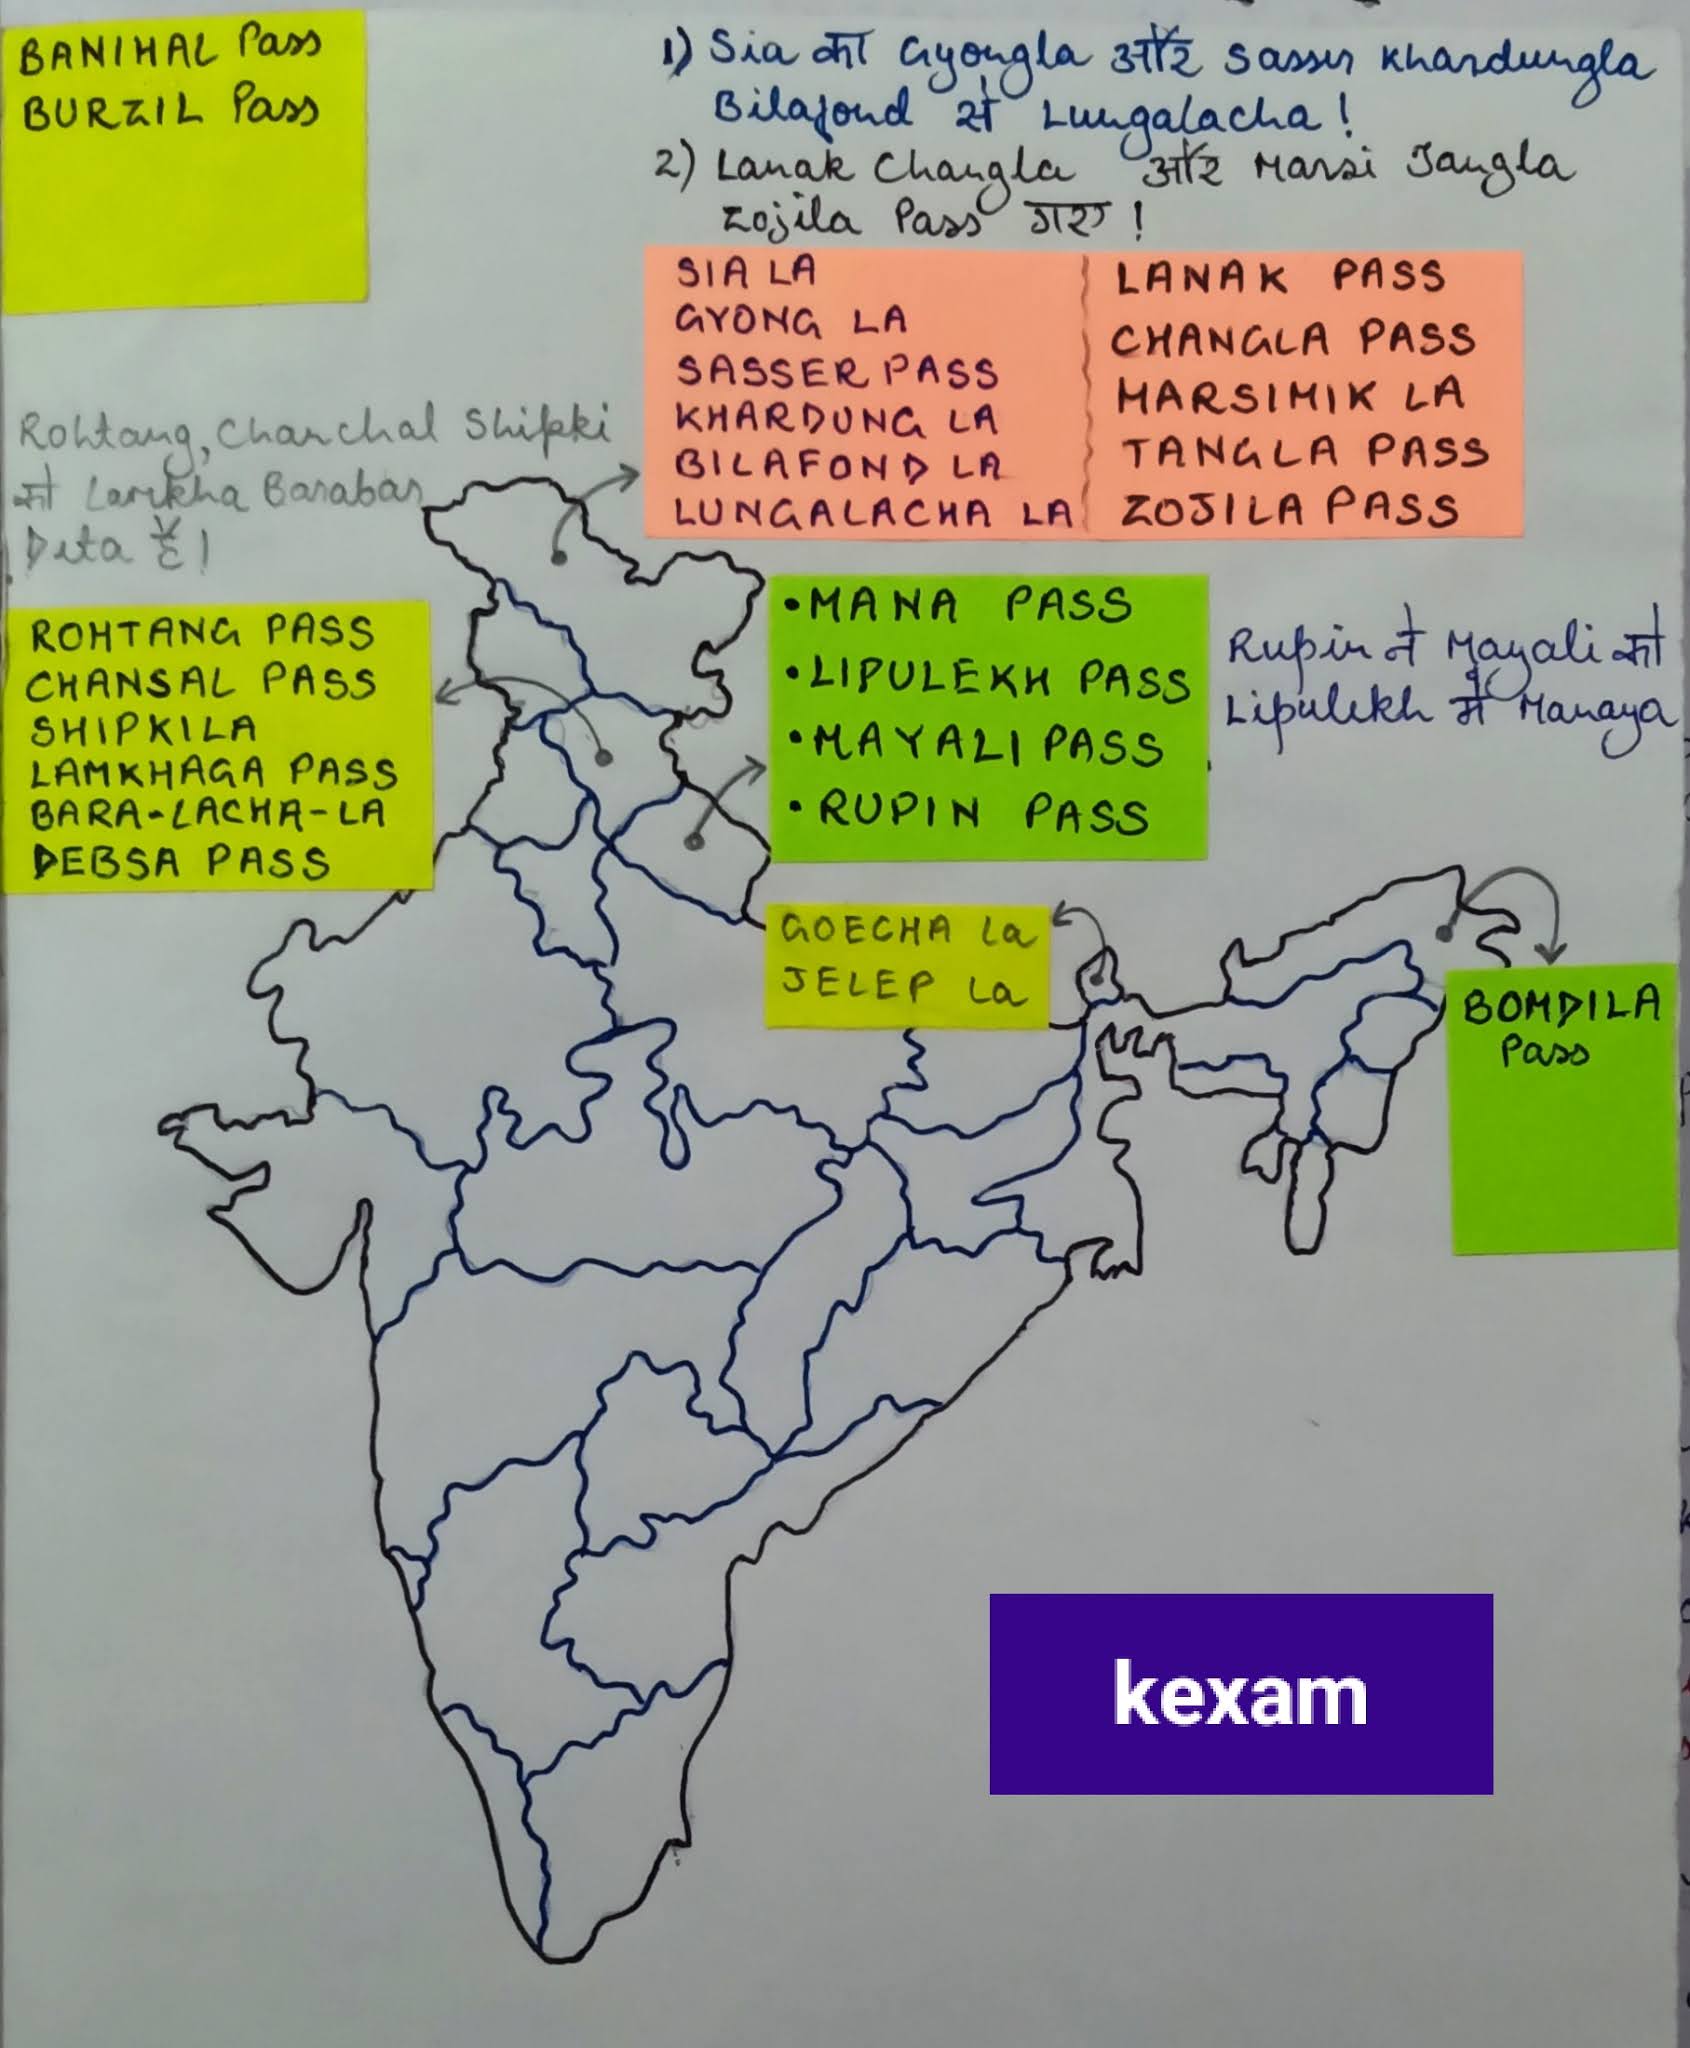 BANIHAL Pass
BURZIL Pass
1) Sia का Gyongla और Sasser Khardungla
Bilafond से Lungalacha !
2) Lanak Changla और Marsi Tangla
Zojila Pass गए !
SIA LA
GYONG LA
SASSER PASS
KHARDUNG LA
BILAFOND LA
LUNGALACHA LA
LANAK PASS
CHANGLA PASS
MARSIMIK LA
TANGLA PASS
ZOJILA PASS
Rohtang, Chanchal Shipki
को Lamkha Barabar
Deta है !
ROHTANG PASS
CHANSAL PASS
SHIPKILA
LAMKHAGA PASS
BARA-LACHA-LA
DEBSA PASS
• MANA PASS
• LIPULEKH PASS
• MAYALI PASS
• RUPIN PASS
Rupin ने Mayali को
Lipulekh में Manaya
GOECHA La
JELEP La
BOMDILA
Pass
kexam